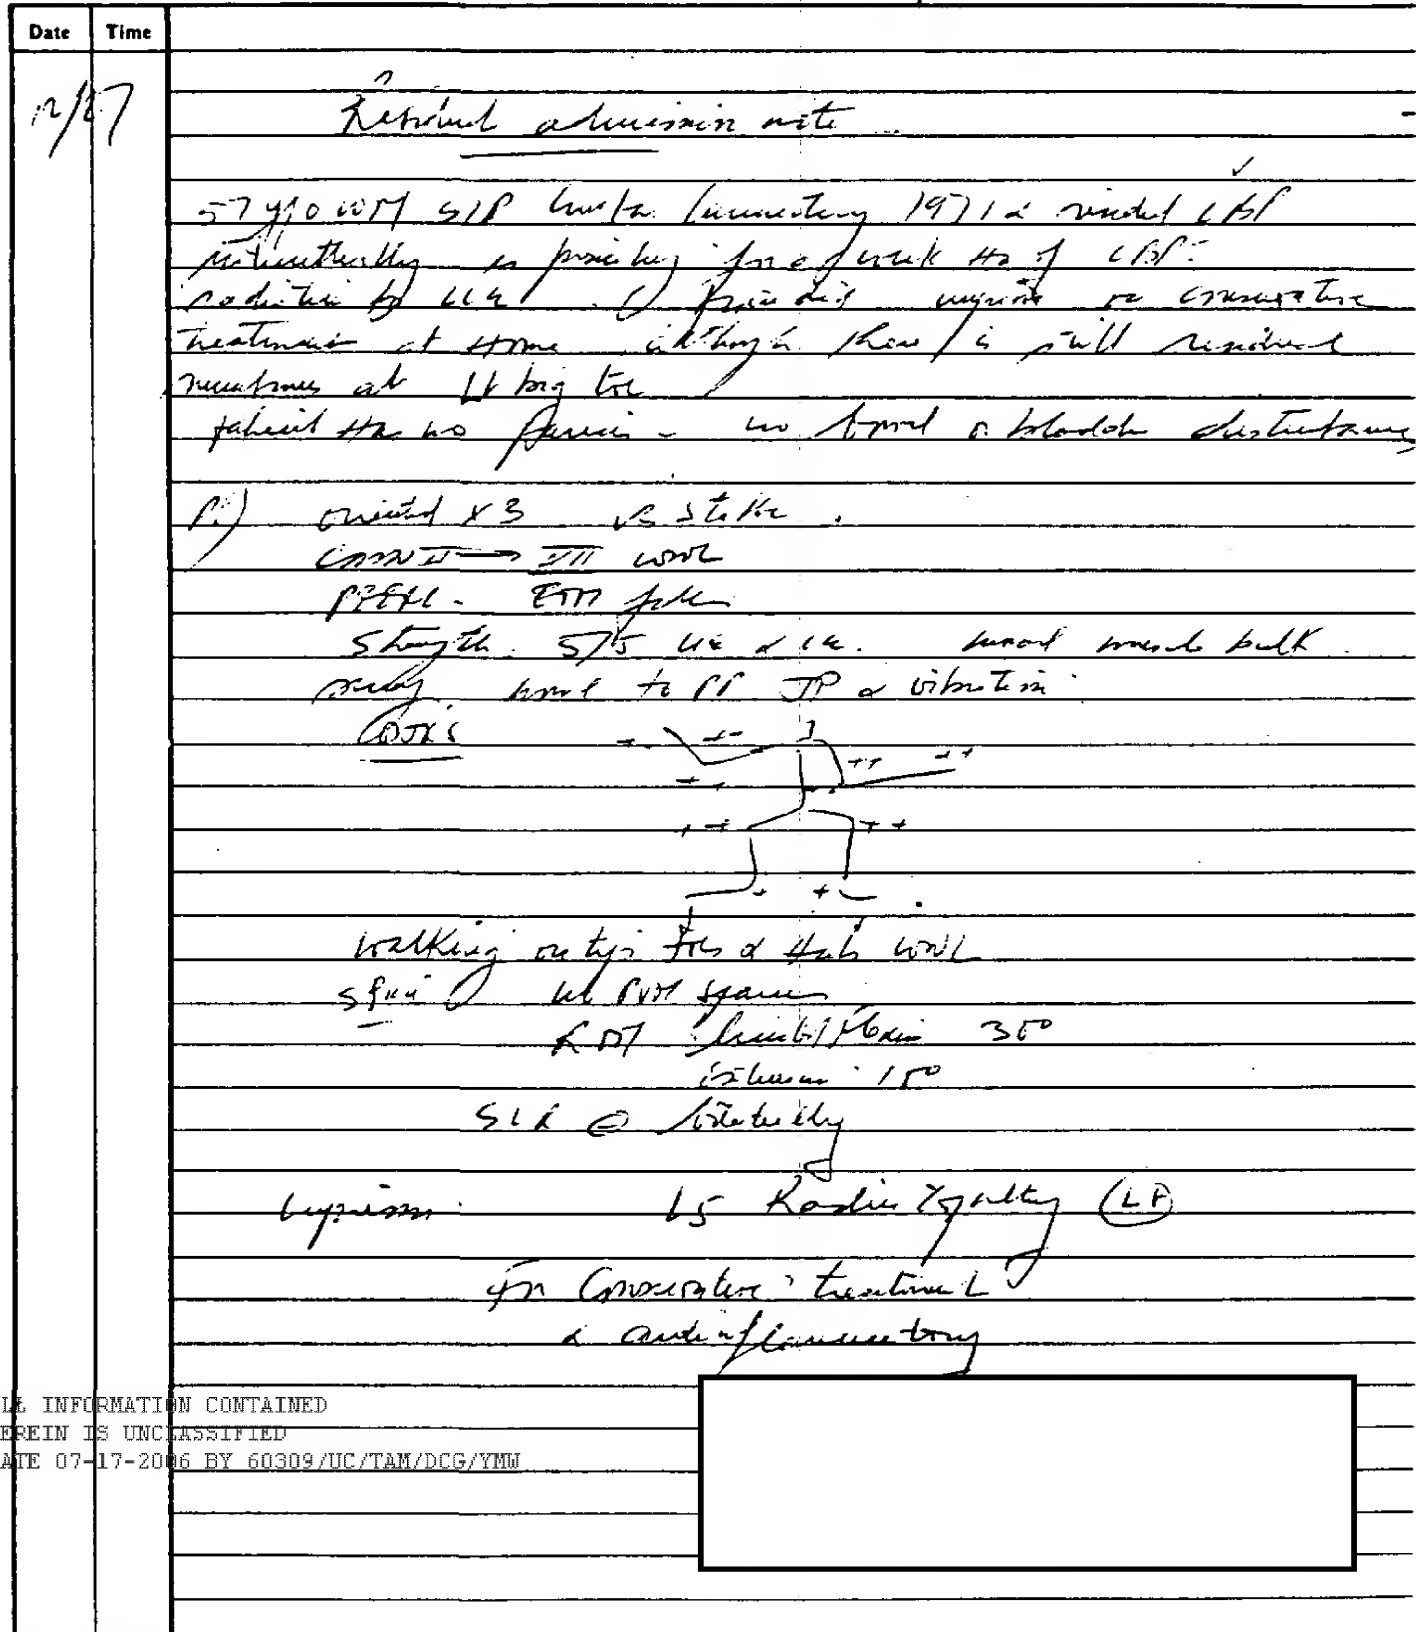 Date Time
12/27
admission note
57 y/o WM S/P lumbar laminectomy 1971 & residual LBP
intermittently is presenting for a few week Hx of LBP
radiation to LLE pain did improve on conservative
treatment at Home although there is still residual
numbness at Lt big toe
patient Has no - no bowel or bladder disturbance
oriented x 3 VS stable
II → XII WNL
PERRL - EOM full
Strength 5/5 UE & LE. muscle bulk
to PP JP & vibration
DTR's
++ ++
++ ++
+ +
walking on tip toes & Heels WNL
spine PVM spasm
ROM flexion 30°
extension 15°
SLR ⊖ bilaterally
Impression: L5 Radiculopathy (Lt)
for Conservative treatment
& antiinflammatory
LL INFORMATION CONTAINED
EREIN IS UNCLASSIFIED
ATE 07-17-2006 BY 60309/UC/TAM/DCG/YMW